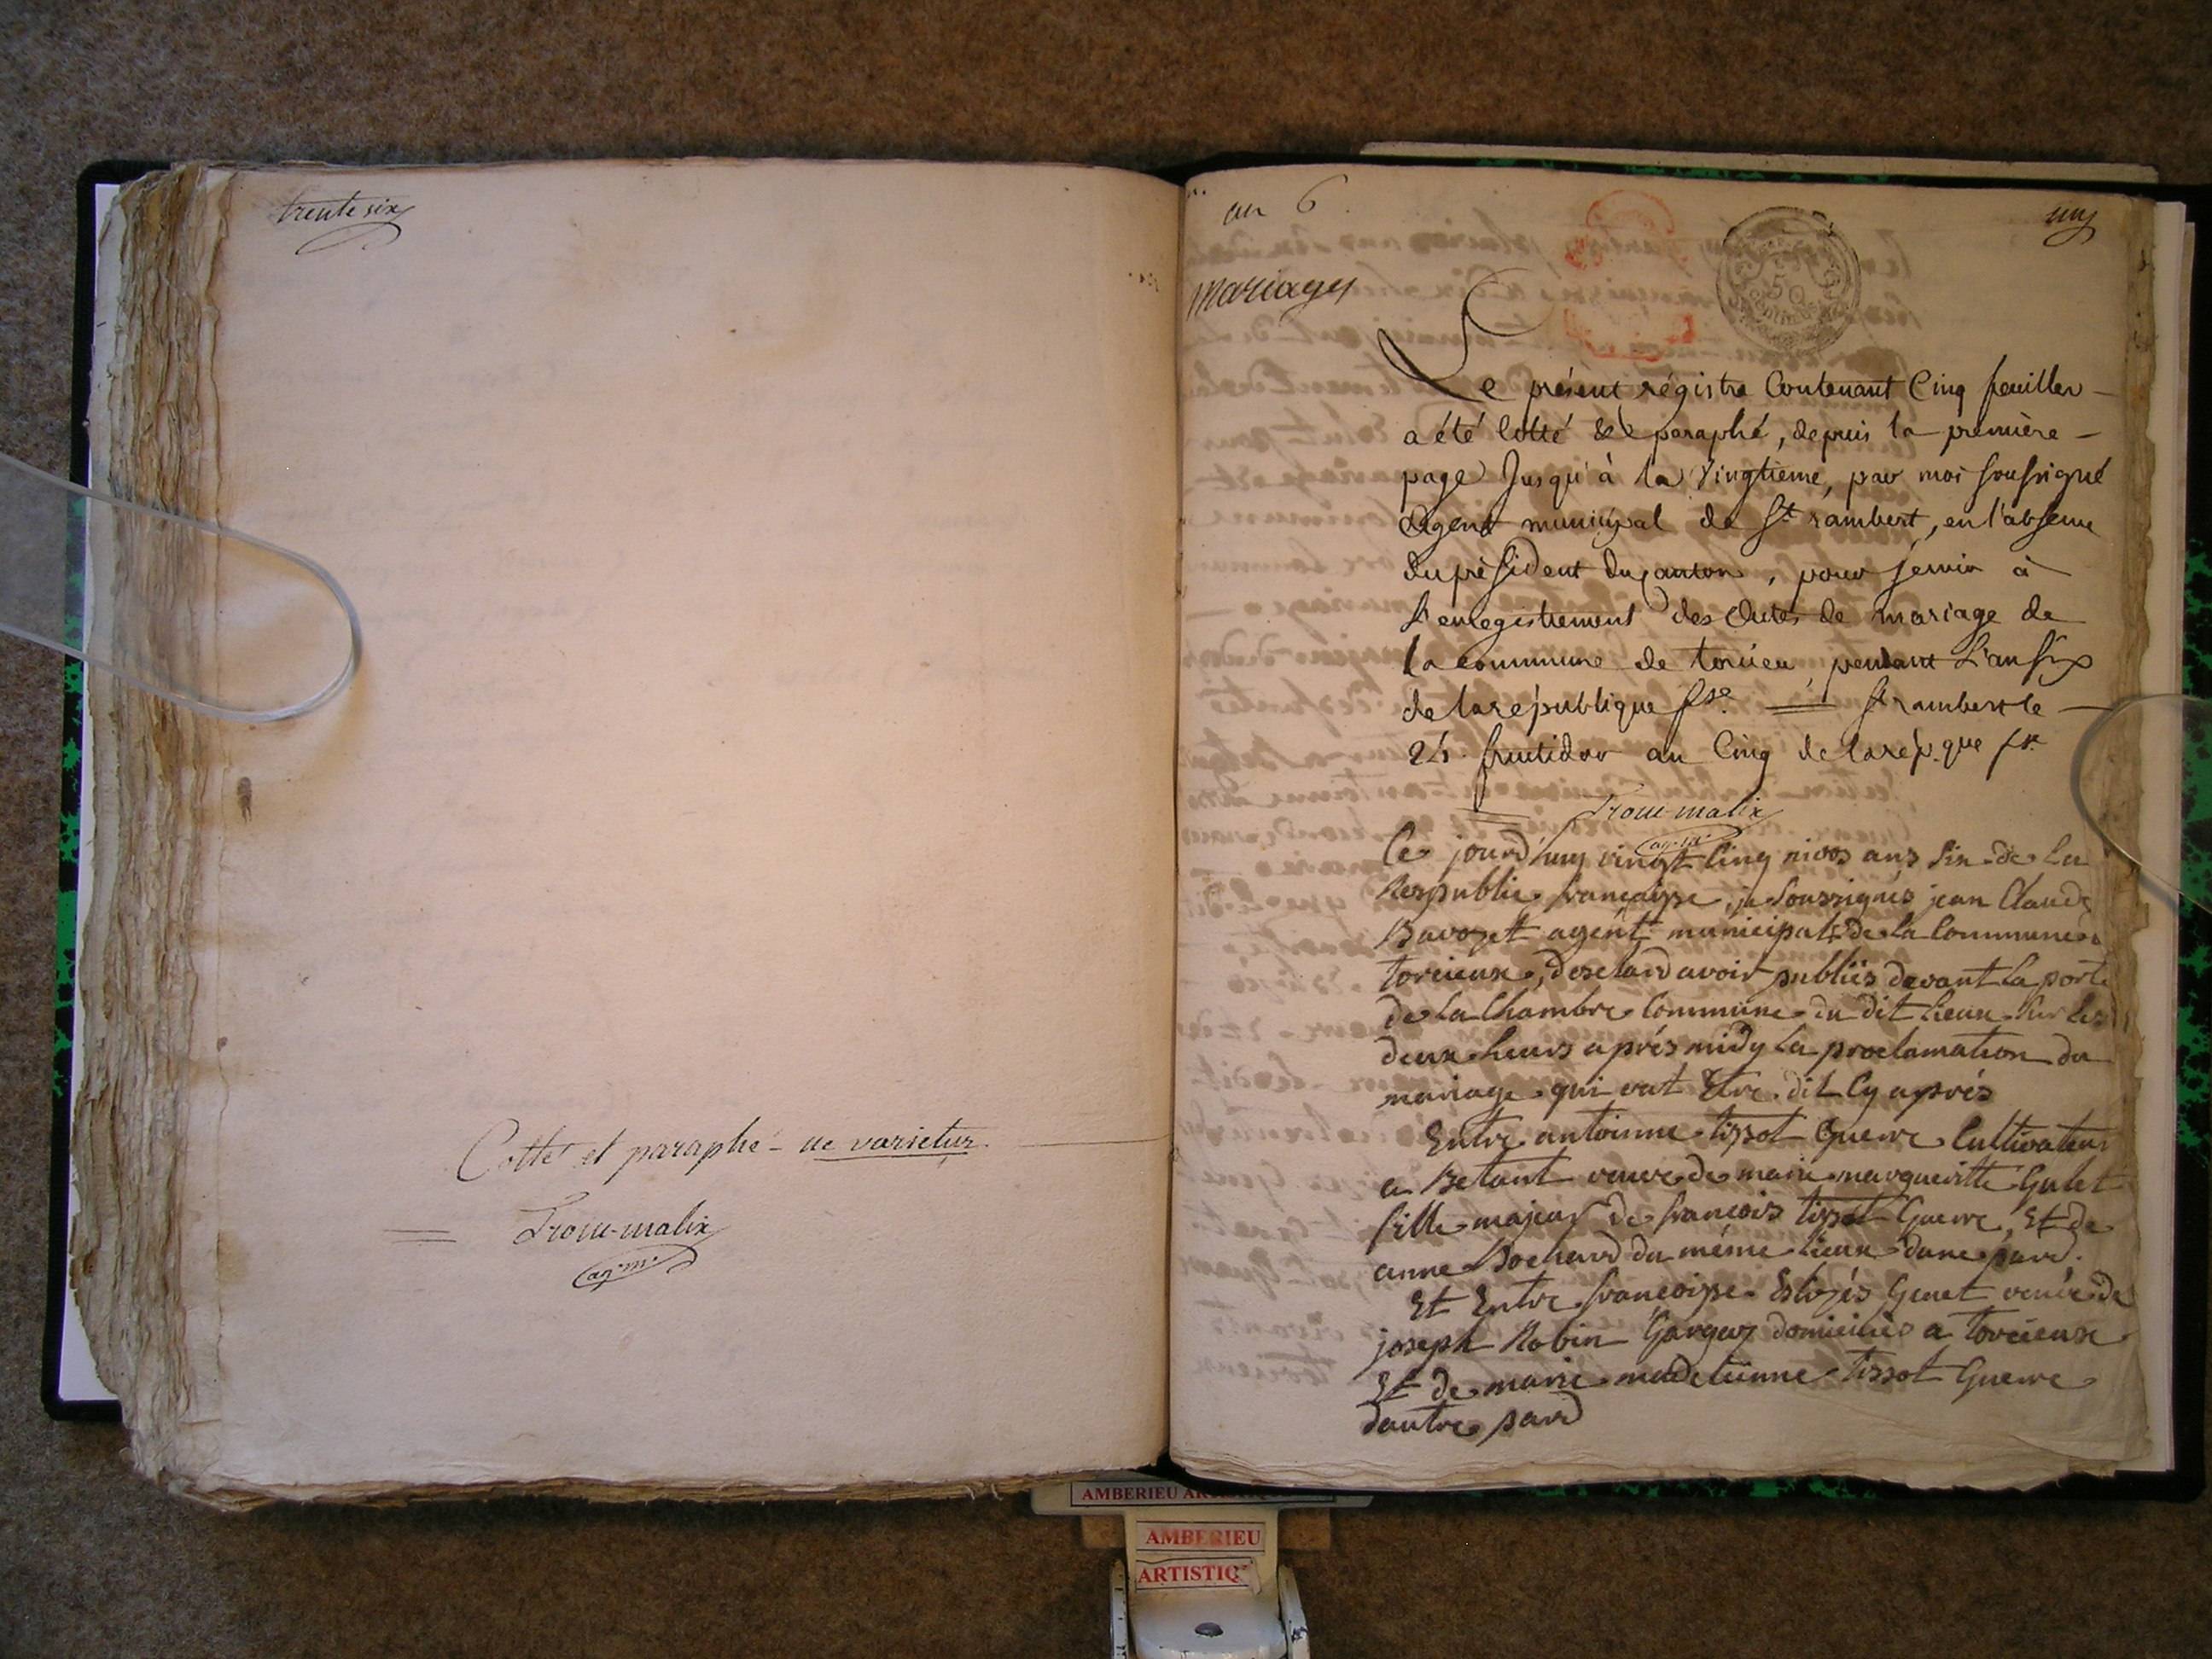 trente six
Cotté et paraphé - ne varietur.
Trou-malix
ag. m.
an 6
uny
mariages
50
Le présent régistre Contenant Cinq feuillers
a été Cotté & paraphé, depuis la première
page Jusqu'à la vingtieme, par moi soussigné
Agent municipal de St rambert, en l'absence
du président du canton, pour servir à
L'enregistrement des Actes de mariage de
la commune de torcieu, pendant L'an six
de la république fse. St rambert le
24 fructidor an Cinq de la rép.que fse
Trou-malix
ag. m.
Ce jourd'huy vingt Cinq nivos ans six de La
Respublic françaisse, je Soussignés jean Claude
Bavozet agént municipal de la Commune de
torcieux, desclard avoir publiés devant la porte
de La Chambre Commune du dit Lieux sur les
deux heurs aprés midy La proclamation du
mariage qui vat Etre dit Cy aprés
Entre antoinne tissot Guerre Cultivateur
a Betant veuve de marie margueritte Gulet
fille majeur de françois tissot Guerre, Et de
anne Bochard du méme Lieux dune pard.
Et Entre françoisse Genet veuve de
joseph Robin domiciliés a torcieux
Et de marie madeleinne tissot Guerre
dautre pard
AMBERIEU
AMBERIEU
ARTISTIQ